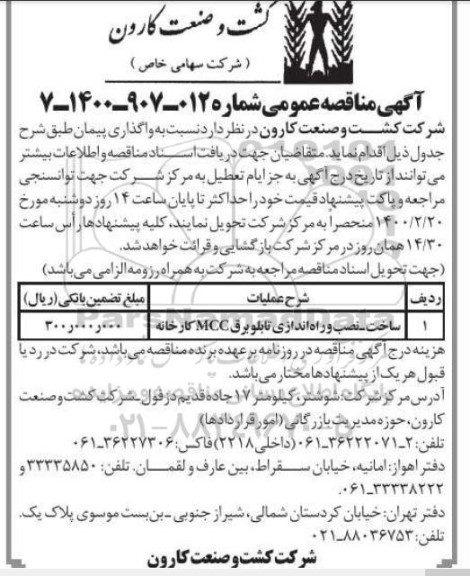 کشت و صنعت کارون
( شرکت سهامی خاص )
آگهی مناقصه عمومی شماره ۰۱۲-۹۰۷-۱۴۰۰-۷
شرکت کشت و صنعت کارون در نظر دارد نسبت به واگذاری پیمان طبق شرح
جدول ذیل اقدام نماید. متقاضیان جهت دریافت اسناد مناقصه و اطلاعات بیشتر
می توانند از تاریخ درج آگهی به جز ایام تعطیل به مرکز شرکت جهت توانسنجی
مراجعه و پاکت پیشنهاد قیمت خود را حداکثر تا پایان ساعت ۱۴ روز دوشنبه مورخ
۱۴۰۰/۲/۲۰ منحصراً به مرکز شرکت تحویل نمایند، کلیه پیشنهادها رأس ساعت
۱۴/۳۰ همان روز در مرکز شرکت بازگشایی و قرائت خواهد شد.
(جهت تحویل اسناد مناقصه مراجعه به شرکت به همراه رزومه الزامی می باشد)
ردیف شرح عملیات مبلغ تضمین بانکی (ریال)
۱ ساخت-نصب و راه اندازی تابلو برق MCC کارخانه ۳۰۰٫۰۰۰٫۰۰۰
هزینه درج آگهی مناقصه در روزنامه بر عهده برنده مناقصه می باشد، شرکت در رد یا
قبول هر یک از پیشنهادها مختار می باشد.
آدرس مرکز شرکت: شوشتر، کیلومتر ۱۷ جاده قدیم دزفول-شرکت کشت و صنعت
کارون، حوزه مدیریت بازرگانی (امور قراردادها)
تلفن: ۲-۳۶۲۲۲۰۷۱-۰۶۱ (داخلی ۲۲۱۸) فاکس: ۳۶۲۲۷۳۰۶-۰۶۱
دفتر اهواز: امانیه، خیابان سقراط، بین عارف و لقمان. تلفن: ۳۳۳۳۵۸۵۰ و
۳۳۳۳۸۲۲۲-۰۶۱.
دفتر تهران: خیابان کردستان شمالی، شیراز جنوبی-بن بست موسوی پلاک یک.
تلفن: ۸۸۰۳۶۷۵۳-۰۲۱
شرکت کشت و صنعت کارون